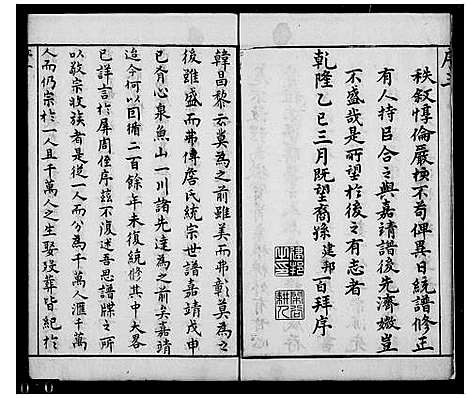 序三
秩敘惇倫嚴悚不苟俾異日統譜修正
有人持吕合之與嘉靖譜後先濟媺豈
不盛哉是所望於後之有志者
乾隆乙巳三月既望裔孫建邦百拜序
韓昌黎云莫為之前雖美而弗彰莫為之
後雖盛而弗傳詹氏統宗世譜嘉靖戊申
已有心泉魚山一川諸先達為之前矣嘉靖
迄今何以因循二百餘年未復統修其中大畧
已詳言於屏周侄序茲不復迷吾思譜牒之所
以敬宗收族者是從一人而分為千萬人滙千萬
人而仍宗於一人且千萬人之生娶殁葬皆統於